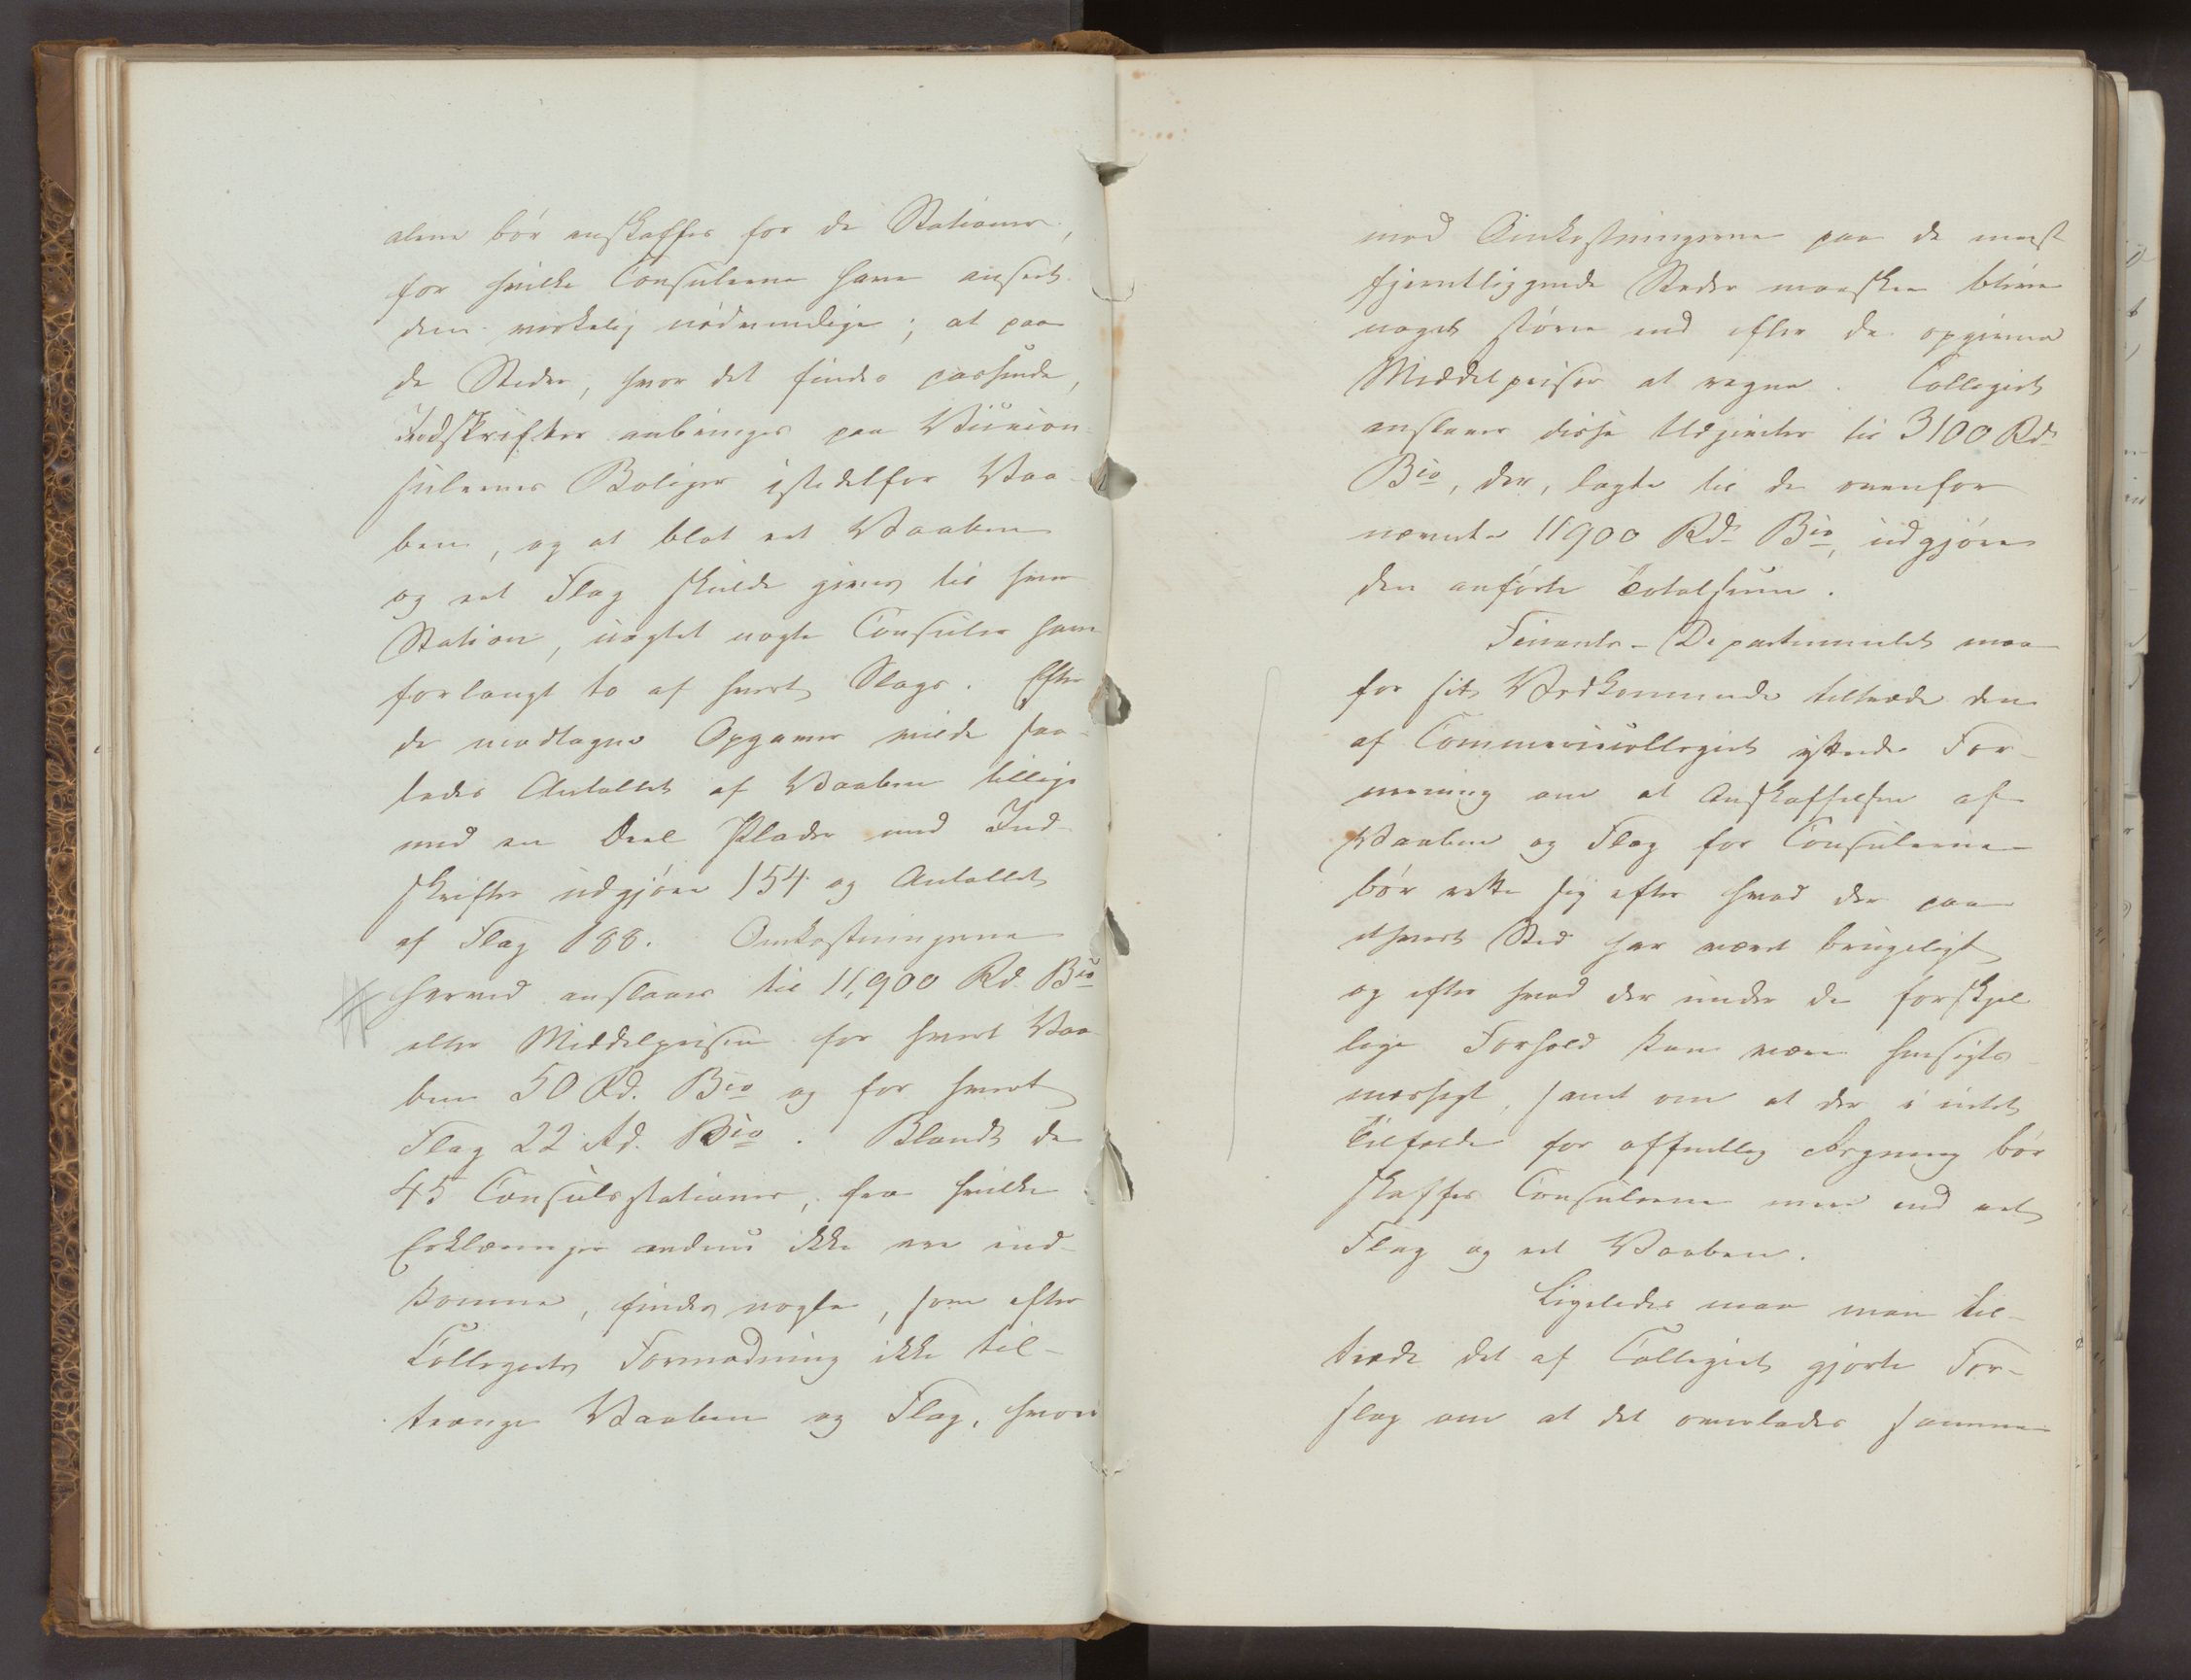 alene bör anskaffes for de Stationer,
for hvilke Consulerne have anseet
dem virkelig nödvendige; at paa
de Steder, hvor det findes passende,
Indskrifter anbringes paa Vicecon-
sulernes Boliger istedetfor Vaa-
ben, og at blot eet Vaaben
og eet Flag skulde gives til hver
Station, uagtet nogle Consuler have
forlangt to af hvert Slags. Efter
de modtagne Opgaver vilde saa-
ledes Antallet af Vaaben tillige
med en Deel Plader med Ind-
skrifter udgjöre 154 og Antallet
af Flag 188. Omkostningerne
herved anslaaes til 11,900 Rd. Bco
eller Middelprisen for hvert Vaa-
ben 50 Rd. Bco og for hvert
Flag 22 Rd. Bco. Blandt de
45 Consulsstationer, fra hvilke
Erklæringer endnu ikke ere ind-
komne, findes nogle, som efter
Collegiets Formodning ikke til-
trænge Vaaben og Flag, hvori
mod Omkostningerne paa de meest
fjerntliggende Steder maaskee blive
noget större end efter de opgivne
Middelpriser at regne. Collegiet
anslaaer disse Udgivter til 3100 Rd.
Bco, der, lagte til de ovenfor
nævnte 11900 Rd. Bco, udgjöre
den anförte Totalsum.
Finants-Departementet maa
for sit Vedkommende tiltræde den
af Commercecollegiet yttrede For-
mening om at Anskaffelsen af
Vaaben og Flag for Consulerne
bör rette sig efter hvad der paa
ethvert Sted har været brugeligt
og efter hvad der under de forskjel-
lige Forhold kan være hensigts-
mæssigt, samt om at der i intet
Tilfælde for offentlig Regning bör
skaffes Consulerne mere end eet
Flag og eet Vaaben.
Ligeledes maa man til-
træde det af Collegiet gjorte For-
slag om at det overlades samme